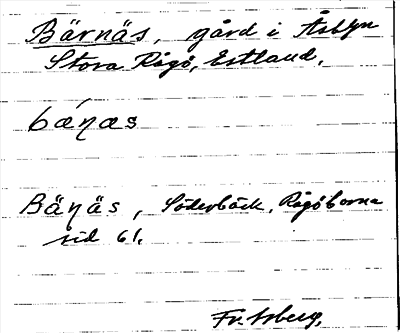 Bärnäs, gård i Åsbyn
Stora Rågö, Estland.
bæ´ŋæs
Bäŋäs, Söderbäck, Rågöborna
sid 61.
Fr. Isberg.